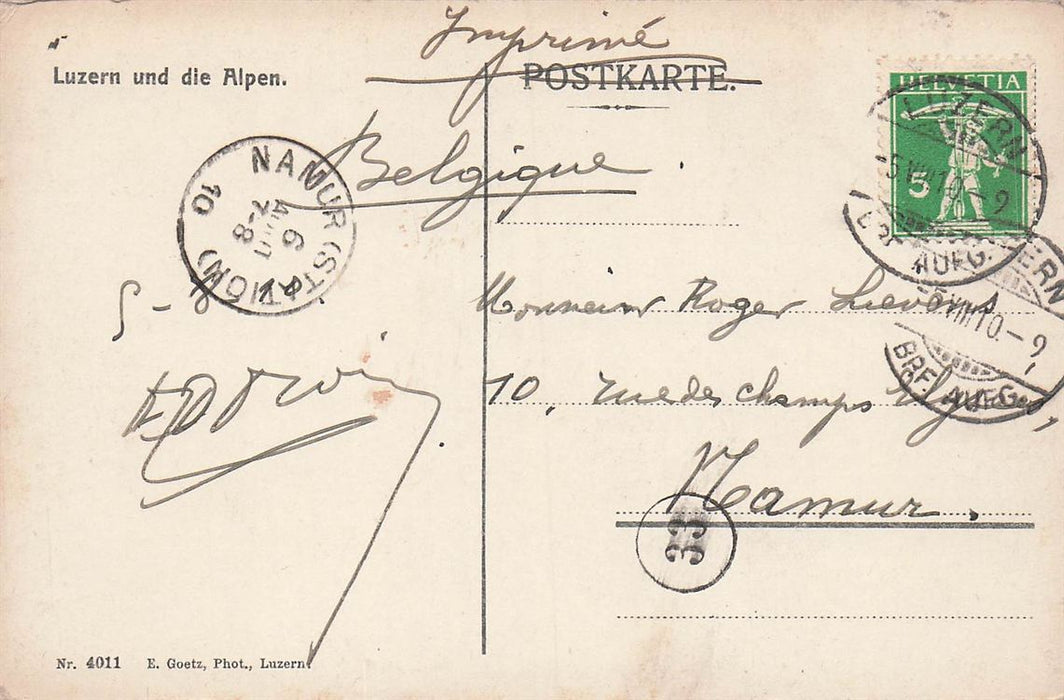 Imprimé
Luzern und die Alpen.
POSTKARTE.
HELVETIA
5
LUZERN
5 VIII 10 - 9
BRF. AUFG.
Belgique.
NAMUR (STATION)
6
AOUT
7-8
10
LUZERN
-5 VIII 10. - 9
BRF. AUFG.
5 - 8
Monsieur Roger Lievens,
10, rue des champs Elysées,
Namur.
33
Nr. 4011 E. Goetz, Phot., Luzern.